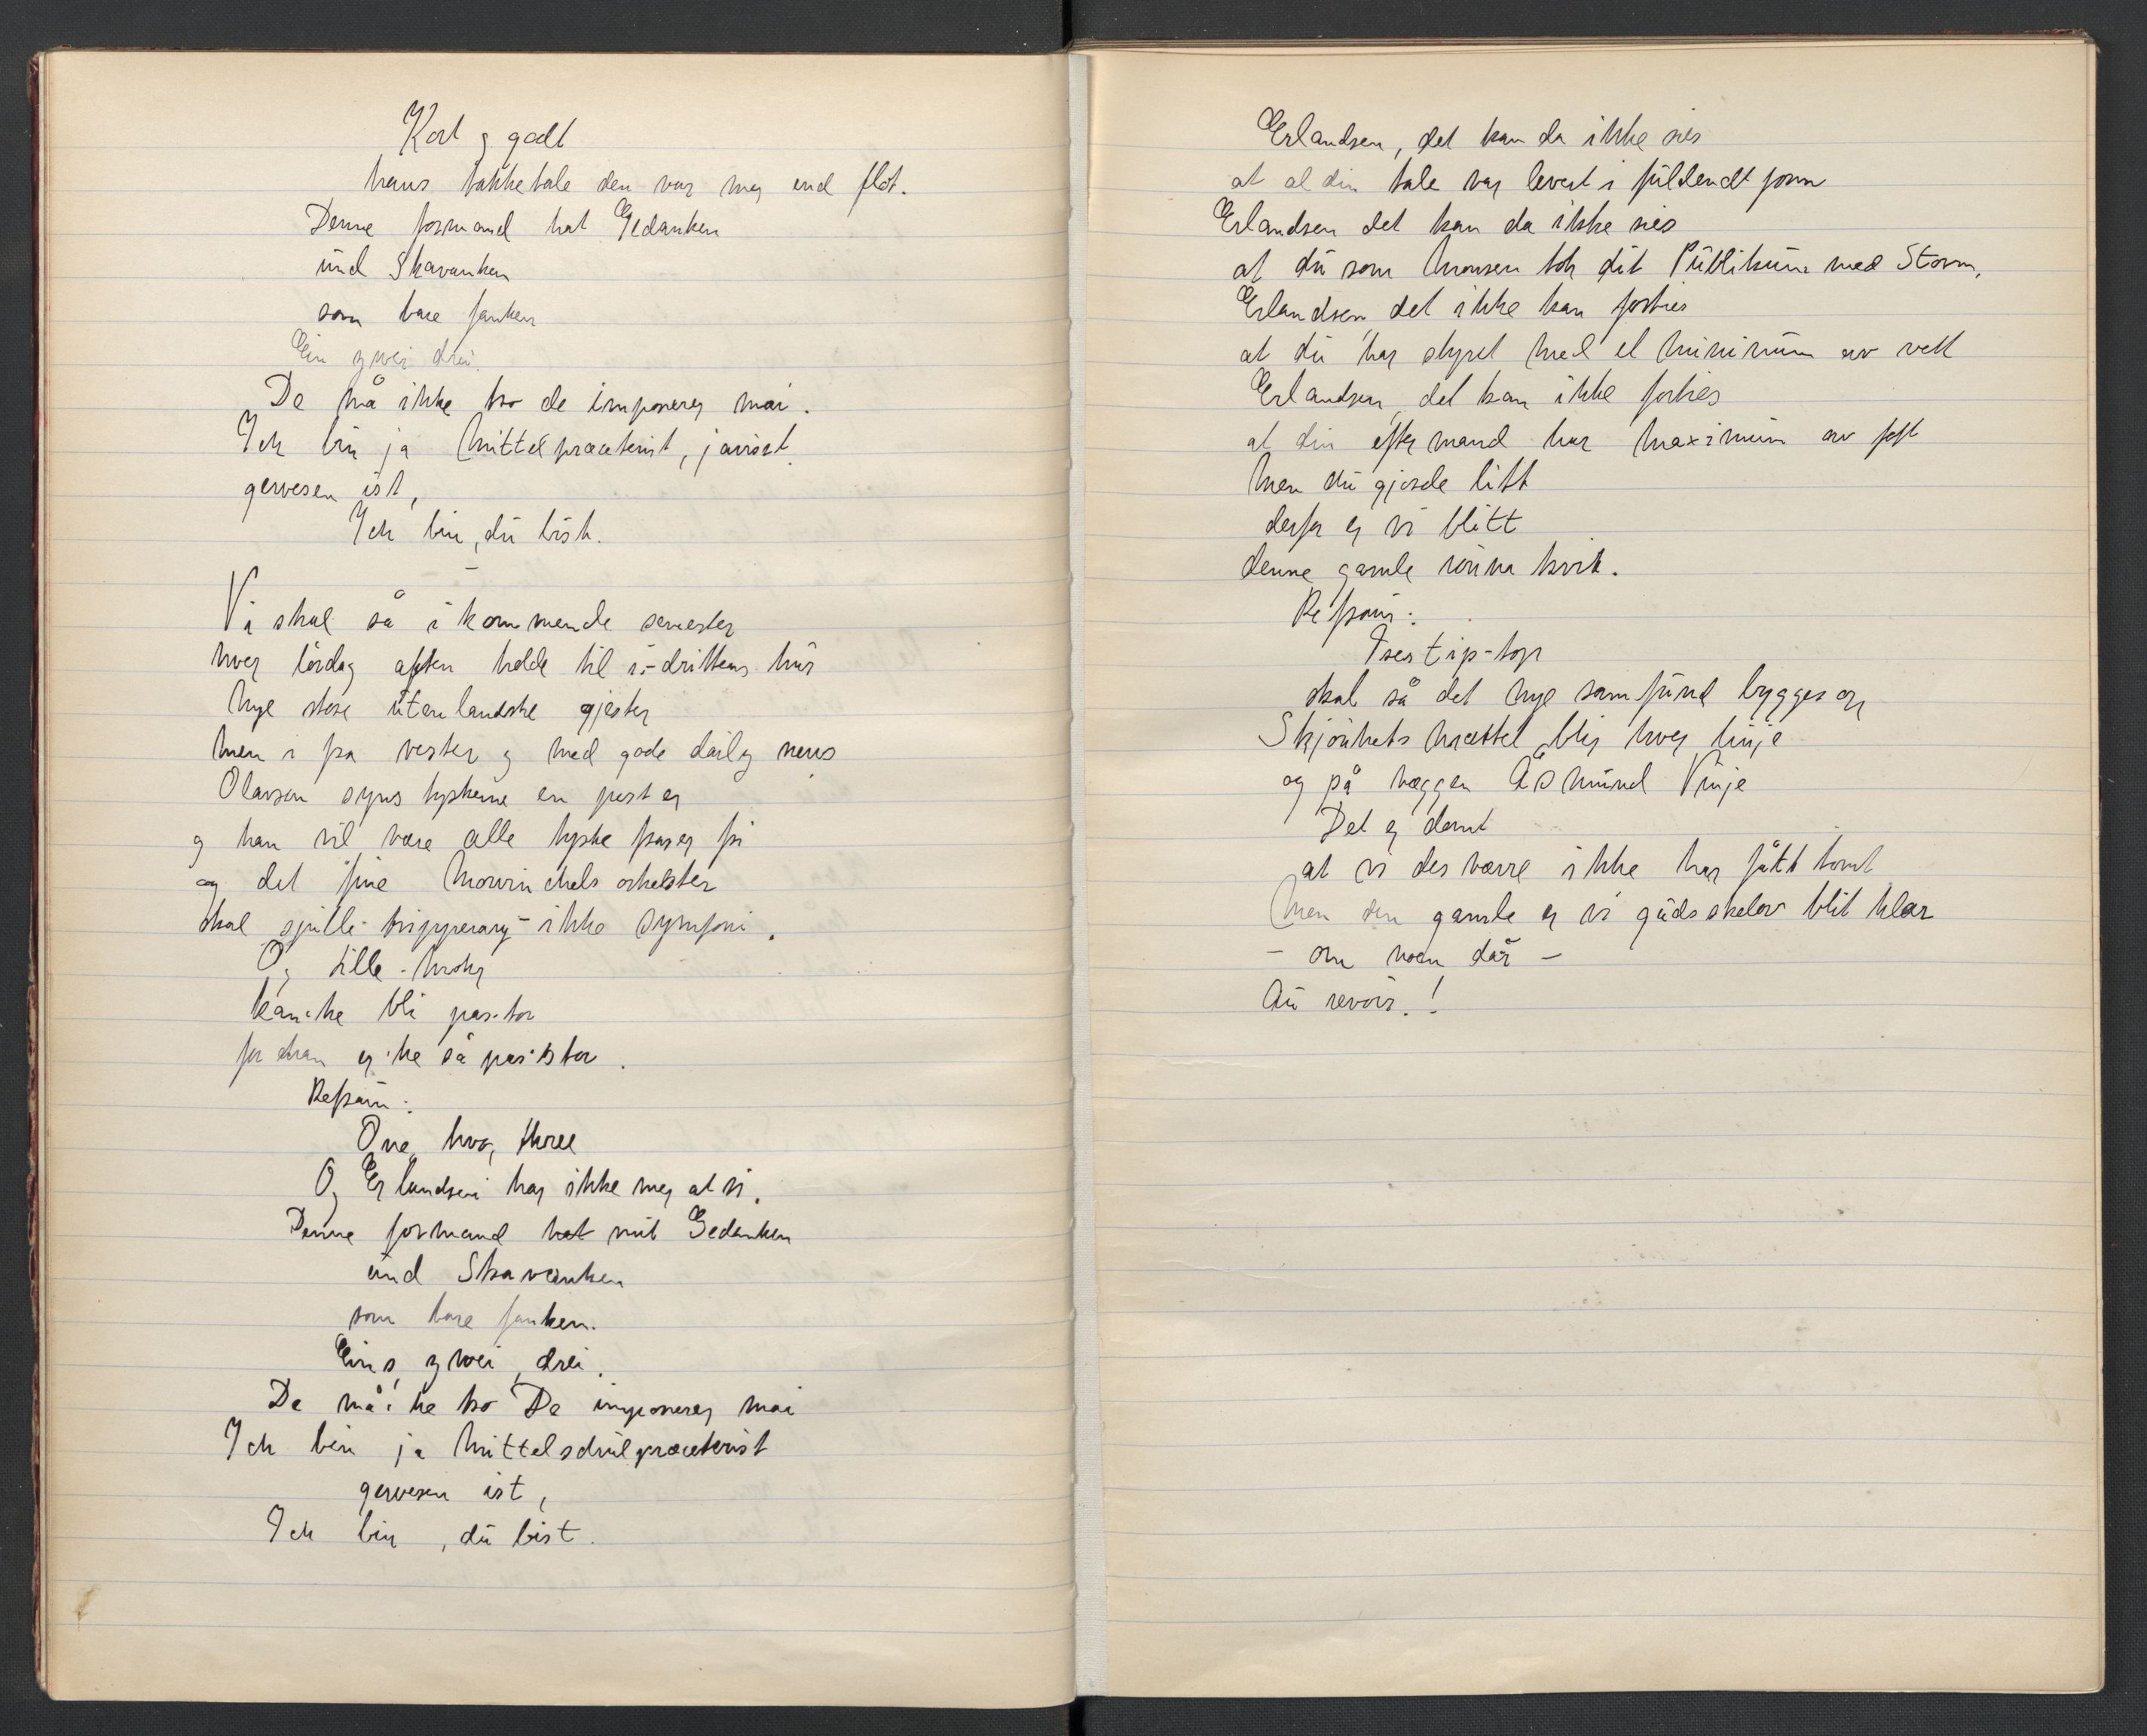 Kort og godt
hans takketale den var mer end flot.
Denne formand hat Gedanken
und Skavanken
som bare fanken
Ein zwei drei.
De må ikke tro de imponerer mai.
Ich bin ja Mittelpræcterist, javist
gewesen ist,
Ich bin, du bist.
Vi skal så i kommende semester
hver lørdag aften holde til i-drittens hus
Mye store utenlandske gjester
men i fra vester og med gode daily news
Olavson synes tyskerne en pest er
og han vil være alle tyske farer fri
og det fine Mowinckels orkester
skal spille tripperary - ikke symfoni.
Og Lille-Mohr
kan-ke bli pas-tor
for han er'ke så pas stor.
Refrain:
One, two, three
Og Erlandsen har ikke mer at si.
Denne formand hat mit Gedanken
und Skavanken
som bare fanken.
Eins, zwei, drei.
De må'ke tro De imponerer mai
Ich bin ja Mittelschulpræcterist
gewesen ist,
Ich bin, du bist.
Erlandsen, det kan da ikke sies
at al din tale var levert i fuldendt form
Erlandsen det kan da ikke sies
at du som Monsen tok dit Publikum med Storm,
Erlandsen, det ikke kan forties
at du har styret med et minimum av vett
Erlandsen, det kan ikke forties
at din eftermand har maximum av fett
Men du gjorde litt
derfor er vi blitt
denne gamle kvit.
Refrain:
tip-top
skal så det nye samfund bygges op
Skjønhets blir hver linje
og på væggen Åsmund Vinje
Det er dømt
at vi desværre ikke har fått tomt
Men den gamle er vi gudskelov blit klar
- om noen dar -
Au revoir.!